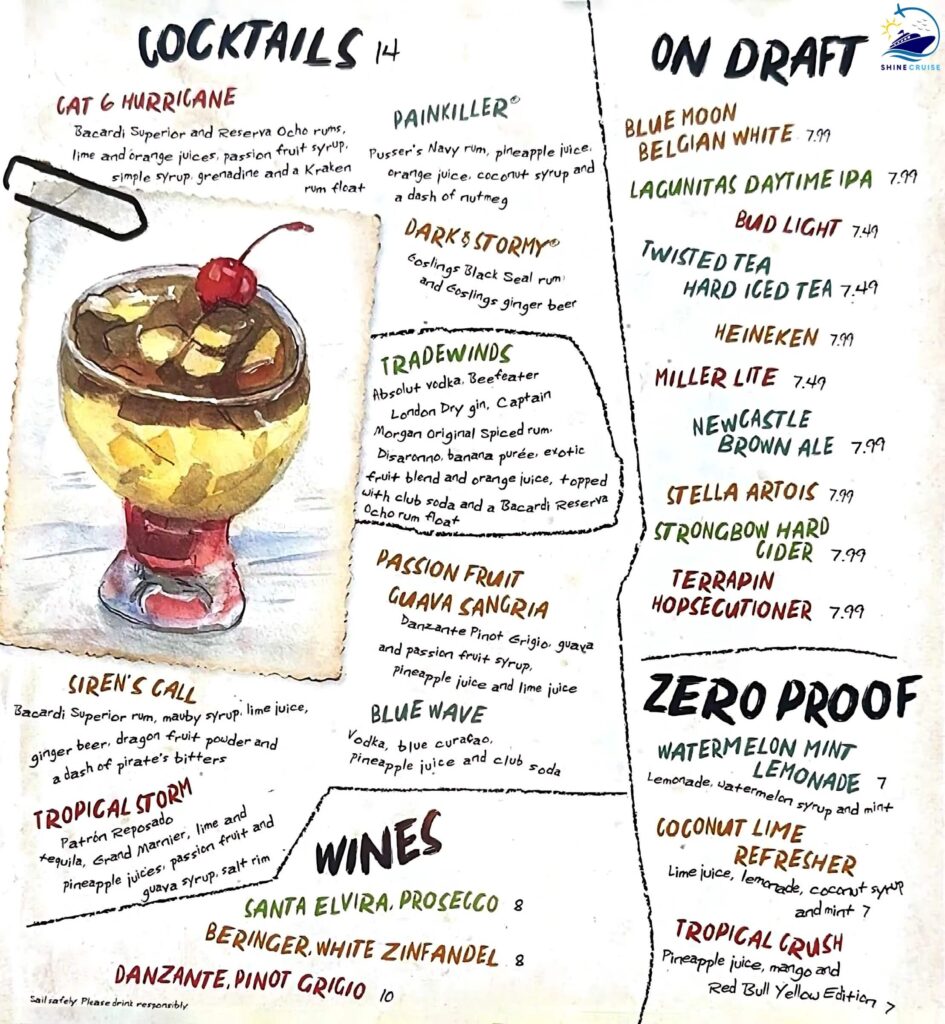 COCKTAILS 14
CAT 6 HURRICANE
Bacardi Superior and Reserva Ocho rums,
lime and orange juices, passion fruit syrup,
simple syrup, grenadine and a Kraken
rum float
PAINKILLER®
Pusser's Navy rum, pineapple juice,
orange juice, coconut syrup and
a dash of nutmeg
DARK & STORMY®
Goslings Black Seal rum
and Goslings ginger beer
TRADEWINDS
Absolut vodka, Beefeater
London Dry gin, Captain
Morgan Original Spiced rum,
Disaronno, banana purée, exotic
fruit blend and orange juice, topped
with club soda and a Bacardi Reserva
Ocho rum float
PASSION FRUIT
GUAVA SANGRIA
Danzante Pinot Grigio, guava
and passion fruit syrup,
pineapple juice and lime juice
BLUE WAVE
Vodka, blue curaçao,
Pineapple juice and club soda
SIREN'S CALL
Bacardi Superior rum, mauby syrup, lime juice,
ginger beer, dragon fruit powder and
a dash of pirate's bitters
TROPICAL STORM
Patrón Reposado
tequila, Grand Marnier, lime and
pineapple juices, passion fruit and
guava syrup, salt rim
WINES
SANTA ELVIRA, PROSECCO 8
BERINGER, WHITE ZINFANDEL 8
DANZANTE, PINOT GRIGIO 10
Sail safely. Please drink responsibly
SHINE CRUISE
ON DRAFT
BLUE MOON
BELGIAN WHITE 7.99
LAGUNITAS DAYTIME IPA 7.99
BUD LIGHT 7.49
TWISTED TEA
HARD ICED TEA 7.49
HEINEKEN 7.99
MILLER LITE 7.49
NEWCASTLE
BROWN ALE 7.99
STELLA ARTOIS 7.99
STRONGBOW HARD
CIDER 7.99
TERRAPIN
HOPSECUTIONER 7.99
ZERO PROOF
WATERMELON MINT
LEMONADE 7
Lemonade, watermelon syrup and mint
COCONUT LIME
REFRESHER
Lime juice, lemonade, coconut syrup
and mint 7
TROPICAL CRUSH
Pineapple juice, mango and
Red Bull Yellow Edition 7